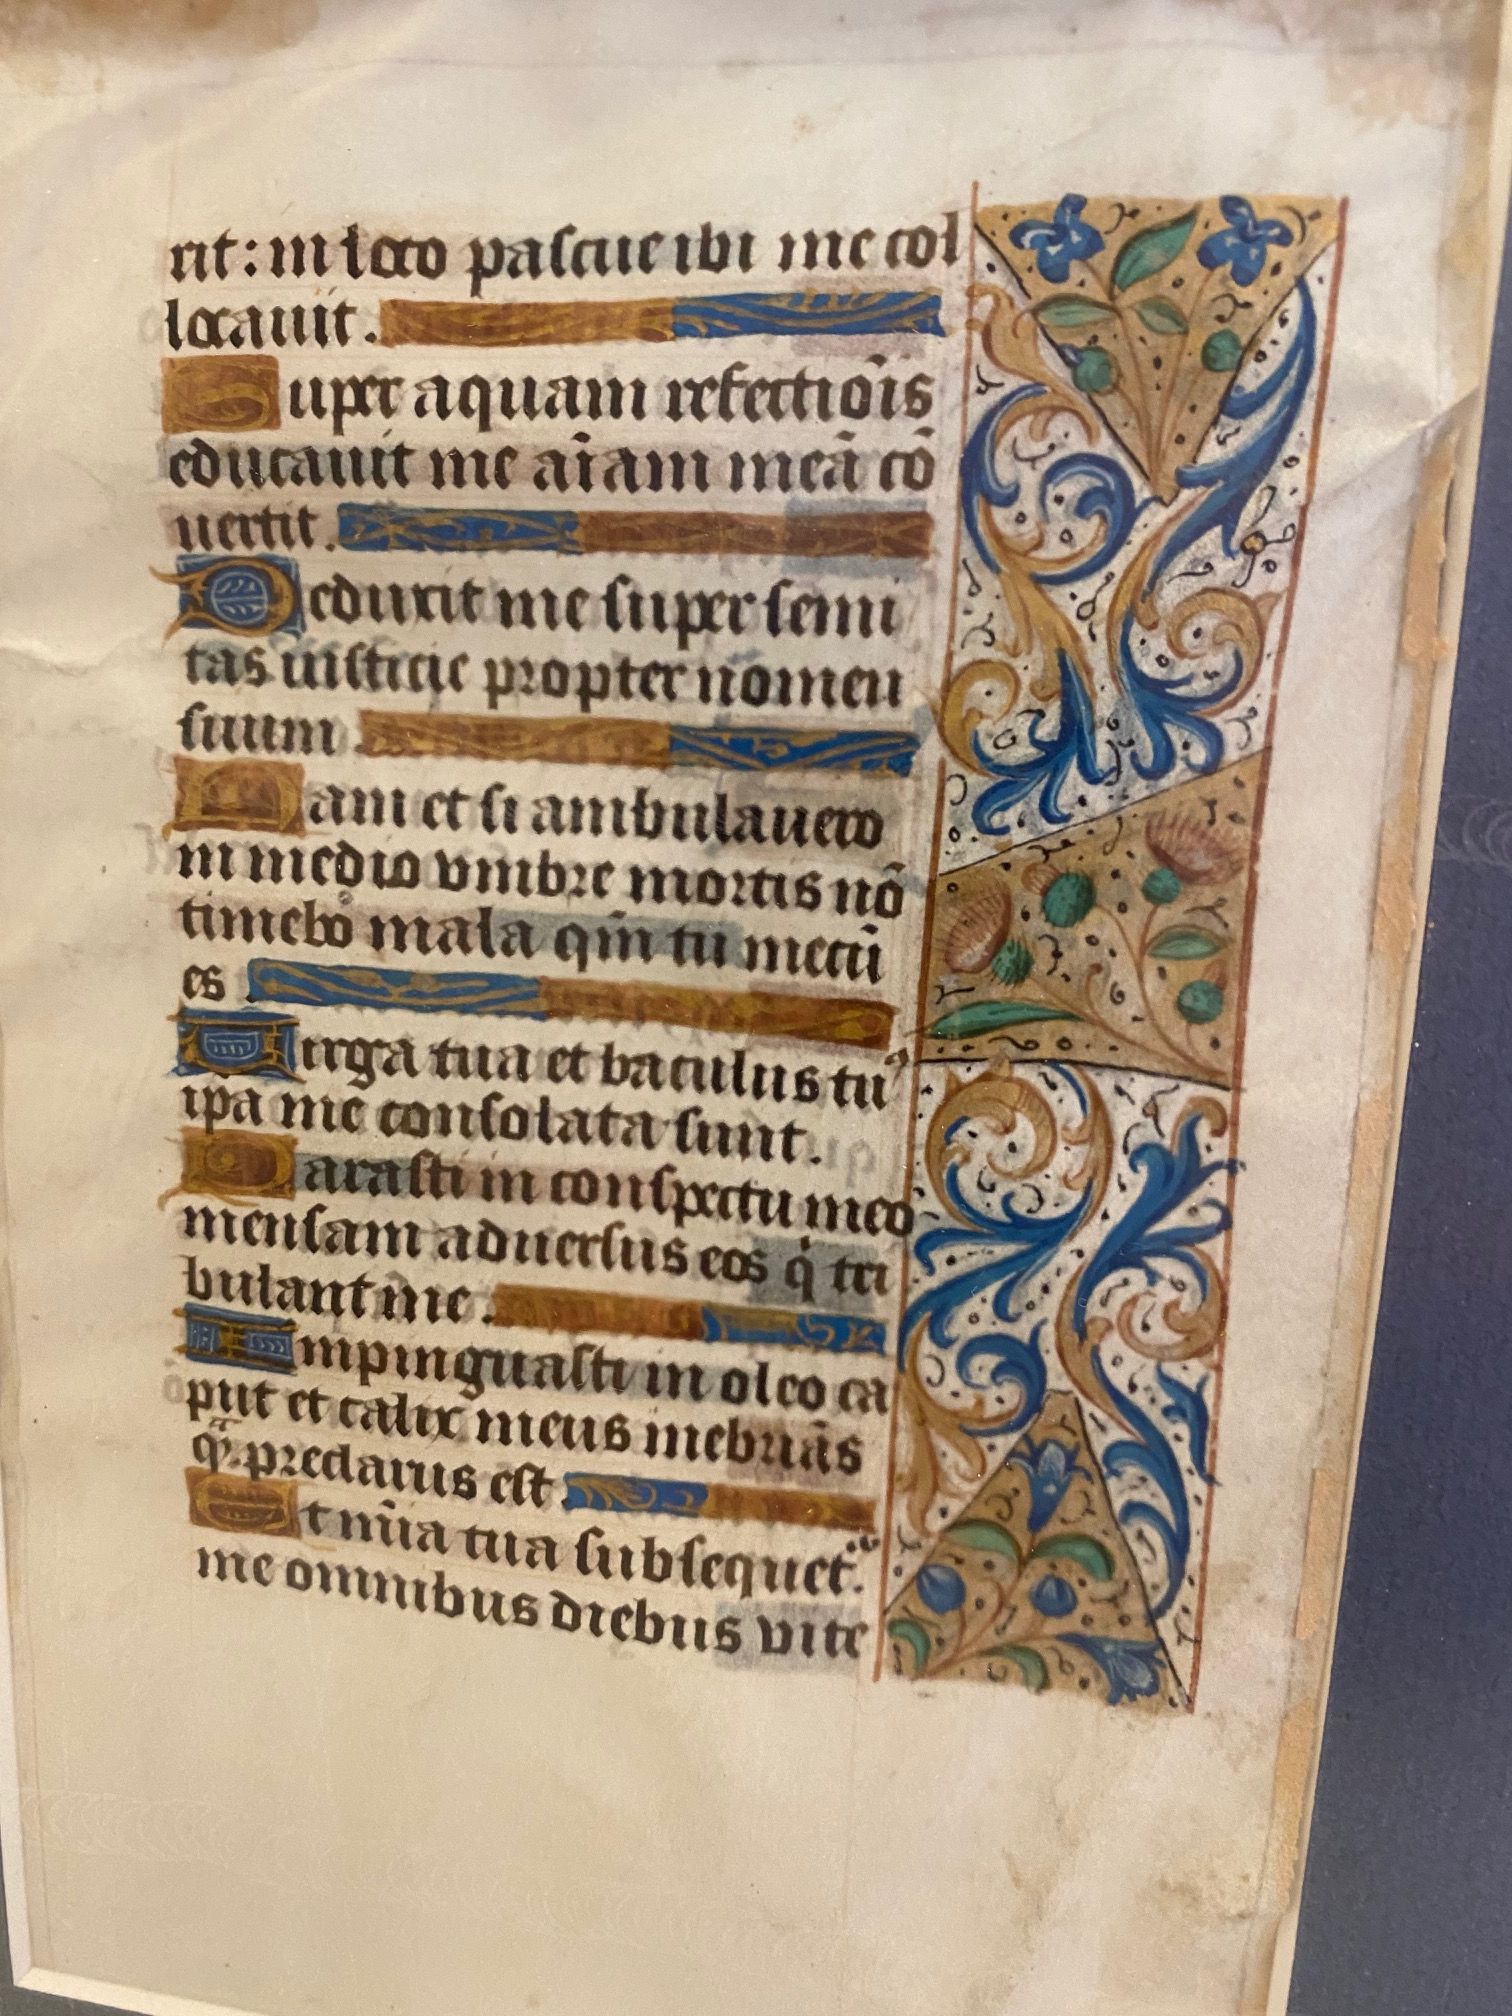 rit: in loco pascue ibi me col
locauit.
Super aquam refectiōis
educauit me aīam meā cō
uertit.
Deduxit me super semi
tas iusticie propter nomen
suum
Nam et si ambulauero
in medio vmbre mortis nō
timebo mala qm̄ tu mecū
es
Virga tua et baculus tuꝰ
ipa me consolata sunt.
Parasti in conspectu meo
mensam aduersus eos q̇ tri
bulant me.
Impinguasti in oleo ca
put et calix meus inebriās
qͣ̄ preclarus est.
Et mīa tua subsequet̉.
me omnibus diebus vite